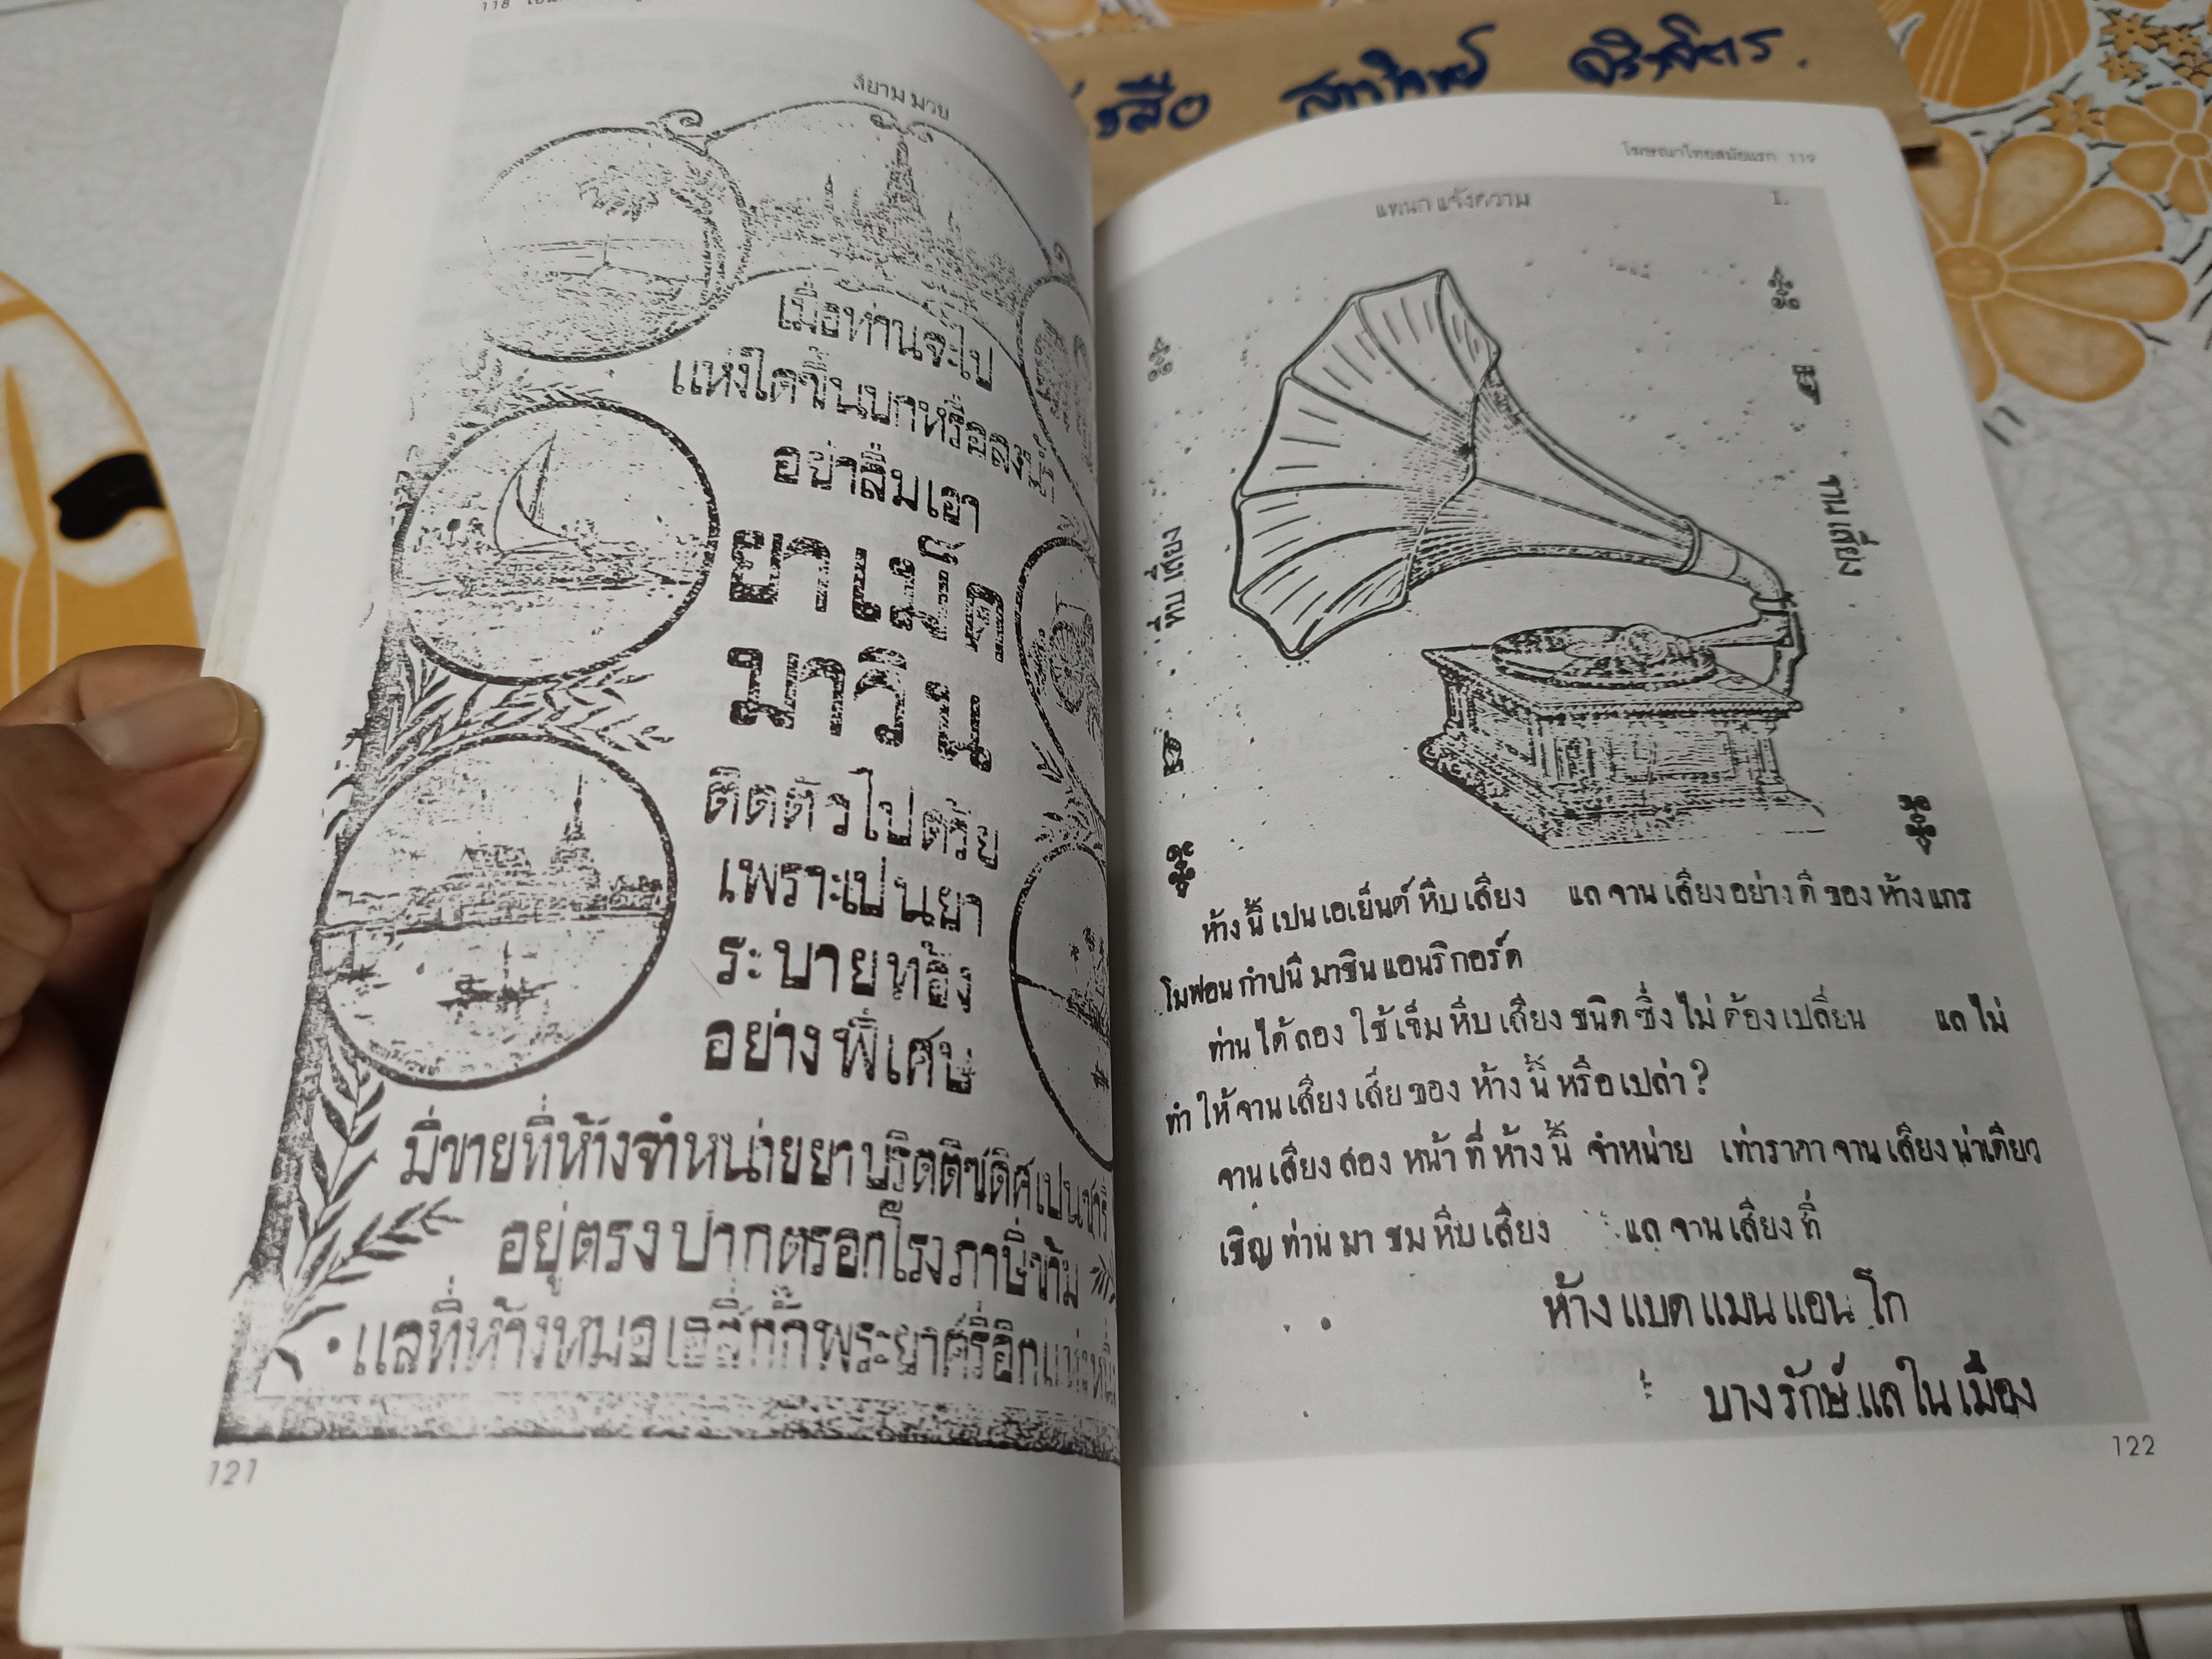 118
สยาม มวย
เมื่อท่านจะไป
แห่งใดขึ้นบกหรือ
อย่าลืมเอา
ยาเม็ด
ติดตัวไปด้วย
เพราะเปนยา
ระบายท้อง
อย่างพิเศษ
มีขายที่ห้างจำหน่ายยาบริตติชดิศเปนซารี
อยู่ตรงปากตรอกโรงภาษีข้าม
แลที่ห้างหมอ
121
โฆษณาไทยสมัยแรก 119
แพนก แจ้งความ
I.
หีบ เสียง
จาน เสียง
ห้าง นี้ เปน เอเย็นต์ หีบ เสียง แล จาน เสียง อย่าง ดี ของ ห้าง แกร
โมฟอน กำปนี มาชิน แอนริกอร์ด
ท่าน ได้ ลอง ใช้ เข็ม หีบ เสียง ชนิด ซึ่ง ไม่ ต้อง เปลี่ยน แล ไม่
ทำ ให้ จาน เสียง เสีย ของ ห้าง นี้ หรือ เปล่า ?
จาน เสียง สอง หน้า ที่ ห้าง นี้ จำหน่าย เท่า ราคา จาน เสียง น่า เดียว
เชิญ ท่าน มา ชม หีบ เสียง แล จาน เสียง ที่
ห้าง แบด แมน แอน โก
บาง รักษ์ แล ใน เมือง
122